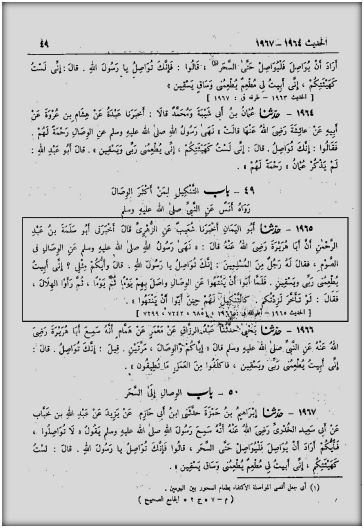 الحديث ١٩٦٤ – ١٩٦٧ ٤٩
أراد أن يواصل فليواصل حتى السحر. قالوا: فإنك تواصل يا رسول الله. قال: إني لست
كهيئتكم، إني أبيت لي مطعم يطعمني وساق يسقين»
[ الحديث ١٩٦٣ – طرفه في: ١٩٦٧ ]
١٩٦٤ – حدثنا عثمان بن أبي شيبة ومحمد قالا: أخبرنا عبدة عن هشام بن عروة عن
أبيه عن عائشة رضي الله عنها قالت «نهى رسول الله صلى الله عليه وسلم عن الوصال رحمة لهم.
فقالوا: إنك تواصل. قال: إني لست كهيئتكم، إني يطعمني ربي ويسقين». قال أبو عبد الله:
لم يذكر عثمان «رحمة لهم».
٤٩ – باب التنكيل لمن أكثر الوصال
رواه أنس عن النبي صلى الله عليه وسلم
١٩٦٥ – حدثنا أبو اليمان أخبرنا شعيب عن الزهري قال أخبرني أبو سلمة بن عبد
الرحمن أن أبا هريرة رضي الله عنه قال: «نهى رسول الله صلى الله عليه وسلم عن الوصال في
الصوم، فقال له رجل من المسلمين: إنك تواصل يا رسول الله. قال وأيكم مثلي؟ إني أبيت
يطعمني ربي ويسقين. فلما أبوا أن ينتهوا عن الوصال واصل بهم يوما ثم يوما، ثم رأوا الهلال،
فقال: لو تأخر لزدتكم. كالتنكيل لهم حين أبوا أن ينتهوا»
[ الحديث ١٩٦٥ – أطرافه في: ١٩٦٦، ٦٨٥١، ٧٢٤٢، ٧٢٩٩ ]
١٩٦٦ – حدثنا يحيى حدثنا عبد الرزاق عن معمر عن همام أنه سمع أبا هريرة رضي
الله عنه عن النبي صلى الله عليه وسلم قال «إياكم والوصال، مرتين. قيل: إنك تواصل. قال:
إني أبيت يطعمني ربي ويسقين، فاكلفوا من العمل ما تطيقون»
٥٠ – باب الوصال إلى السحر
١٩٦٧ – حدثنا إبراهيم بن حمزة حدثني ابن أبي حازم عن يزيد عن عبد الله بن خباب
عن أبي سعيد الخدري رضي الله عنه أنه سمع رسول الله صلى الله عليه وسلم يقول «لا تواصلوا،
فأيكم أراد أن يواصل فليواصل حتى السحر. قالوا: فإنك تواصل يا رسول الله. قال: لست
كهيئتكم، إني أبيت لي مطعم يطعمني وساق يسقين»
(١) أي جعل أقصى المواصلة الاكتفاء بطعام السحور بين اليومين.
( م – ٧ • ج ٢ • الجامع الصحيح )